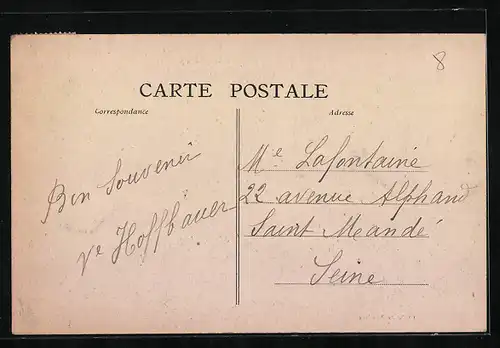 8
CARTE POSTALE
Correspondance
Adresse
Bon Souvenir
Ve Hoffbauer
Me Lafontaine
22 avenue Alphand
Saint Meandé
Seine